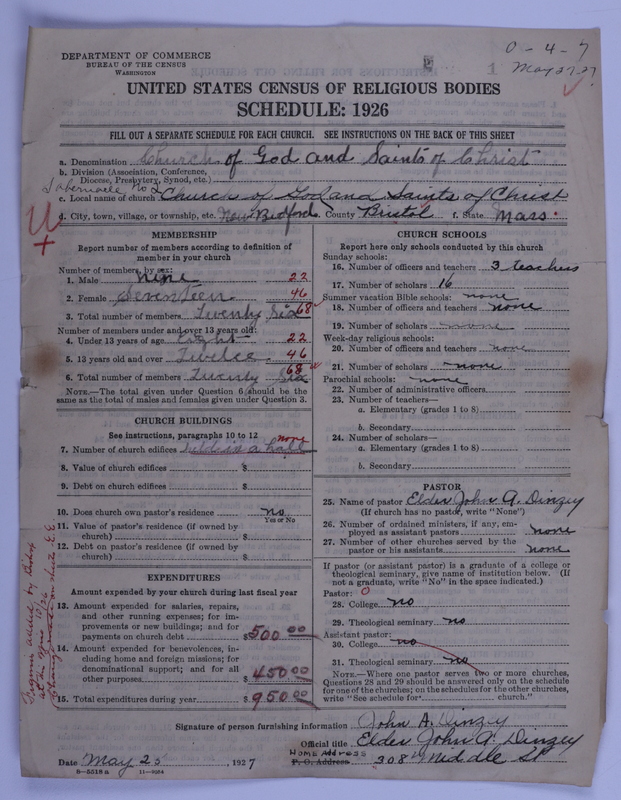 DEPARTMENT OF COMMERCE
BUREAU OF THE CENSUS
WASHINGTON
0-4-7
May 27 27
1
UNITED STATES CENSUS OF RELIGIOUS BODIES
SCHEDULE: 1926
FILL OUT A SEPARATE SCHEDULE FOR EACH CHURCH. SEE INSTRUCTIONS ON THE BACK OF THIS SHEET
a. Denomination Church of God and Saints of Christ
b. Division (Association, Conference,
Diocese, Presbytery, Synod, etc.)
Tabernacle No 2
c. Local name of church Church of God and Saints of Christ
d. City, town, village, or township, etc. New Bedford County Bristol f. State Mass.
MEMBERSHIP
Report number of members according to definition of
member in your church
Number of members, by sex:
1. Male nine 22
2. Female Seventeen 46
3. Total number of members Twenty Six 68
Number of members under and over 13 years old:
4. Under 13 years of age eight 22
5. 13 years old and over Twelve 46
6. Total number of members Twenty Six 68
NOTE.—The total given under Question 6 should be the
same as the total of males and females given under Question 3.
CHURCH BUILDINGS
See instructions, paragraphs 10 to 12
7. Number of church edifices hold in a hall none
8. Value of church edifices $
9. Debt on church edifices $
10. Does church own pastor's residence no
Yes or No
11. Value of pastor's residence (if owned by
church) $
12. Debt on pastor's residence (if owned by
church) $
EXPENDITURES
Amount expended by your church during last fiscal year
13. Amount expended for salaries, repairs,
and other running expenses; for im-
provements or new buildings; and for
payments on church debt $500 00
14. Amount expended for benevolences, in-
cluding home and foreign missions; for
denominational support; and for all
other purposes $450 00
15. Total expenditures during year $950 00
CHURCH SCHOOLS
Report here only schools conducted by this church
Sunday schools:
16. Number of officers and teachers 3 teachers
17. Number of scholars 16
Summer vacation Bible schools: none
18. Number of officers and teachers none
19. Number of scholars none
Week-day religious schools:
20. Number of officers and teachers none
21. Number of scholars none
Parochial schools: none
22. Number of administrative officers
23. Number of teachers—
a. Elementary (grades 1 to 8)
b. Secondary
24. Number of scholars—
a. Elementary (grades 1 to 8)
b. Secondary
PASTOR
25. Name of pastor Elder John A. Dinzey
(If church has no pastor, write "None")
26. Number of ordained ministers, if any, em-
ployed as assistant pastors none
27. Number of other churches served by the
pastor or his assistants none
If pastor (or assistant pastor) is a graduate of a college or
theological seminary, give name of institution below. (If
not a graduate, write "No" in the space indicated.)
Pastor: 0
28. College no
29. Theological seminary no
Assistant pastor:
30. College no
31. Theological seminary no
NOTE.—Where one pastor serves two or more churches,
Questions 28 and 29 should be answered only on the schedule
for one of the churches; on the schedules for the other churches,
write "See schedule for church."
Signature of person furnishing information John A. Dinzey
Official title Elder John A. Dinzey
HOME ADDRESS
P. O. Address 308 Middle St
Date May 25 1927
8-5518a 11-9564